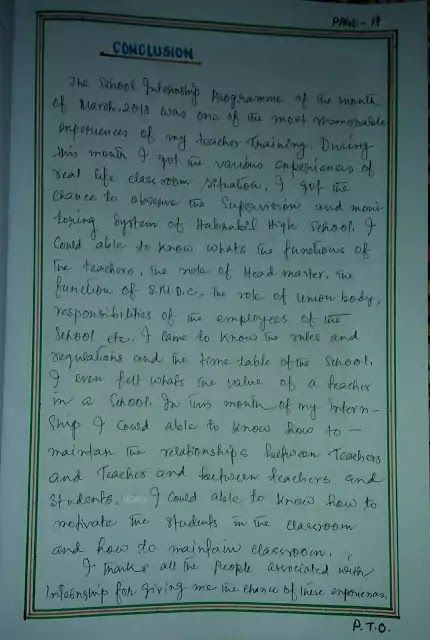 PAGE - 17
CONCLUSION
The School Internship Programme of the month
of March, 2018 was one of the most memorable
experiences of my teacher Training. During
this month I got the various experiences of
real life classroom situation. I got the
chance to observe the Supervision and moni-
toring system of Habrabil High School. I
Could able to know whats the functions of
The teachers, The role of Head master, The
function of S.M.D.C, The role of union body,
responsibilities of the employees of the
School etc. I came to know the rules and
regulations and the time table of the School.
I even felt whats the value of a teacher
in a School. In this month of my Intern-
Ship I Could able to know how to -
maintan the relationships between Teachers
and Teacher and between teachers and
Students. I Could able to know how to
motivate the students in the classroom
and how to maintain classroom.
I thanks all the People associated with
Internship for giving me the chance of these experiences.
P.T.O.